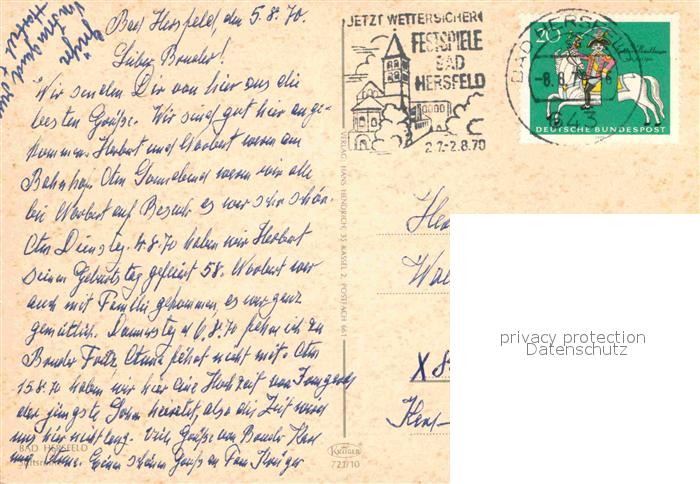 Bad Hersfeld, den 5.8.70.
Lieber Bruder!
Wir senden Dir von hier aus die
besten Grüße. Wir sind gut hier ange-
kommen. Herbert und Norbert waren am
Bahnhof. Am Sonnabend waren wir alle
bei Norbert auf Besuch es war sehr schön.
Am Dienstag, 4.8.70 haben wir Herbert
seinen Geburtstag gefeiert 58. Norbert war
auch mit Familie gekommen, es war ganz
gemütlich. Donnerstag d 6.8.70 fahre ich zu
Bruder Fritz, fährt nicht mit. Am
15.8.70 haben wir hier eine Hochzeit von
der jüngste Sohn heiratet, also die Zeit wird
uns hier nicht lang. Viele Grüße von Bruder
und Einen schönen Gruß an Fam. Krüger
Grüße
JETZT WETTERSICHER!
FESTSPIELE
BAD
HERSFELD
2.7.-2.8.70
BAD HERSFELD
643
20
DEUTSCHE BUNDESPOST
VERLAG HANS HENDRICH, 35 KASSEL 2, POSTFACH 661
X 8
BAD HERSFELD
Krüger
721/10
privacy protection
Datenschutz